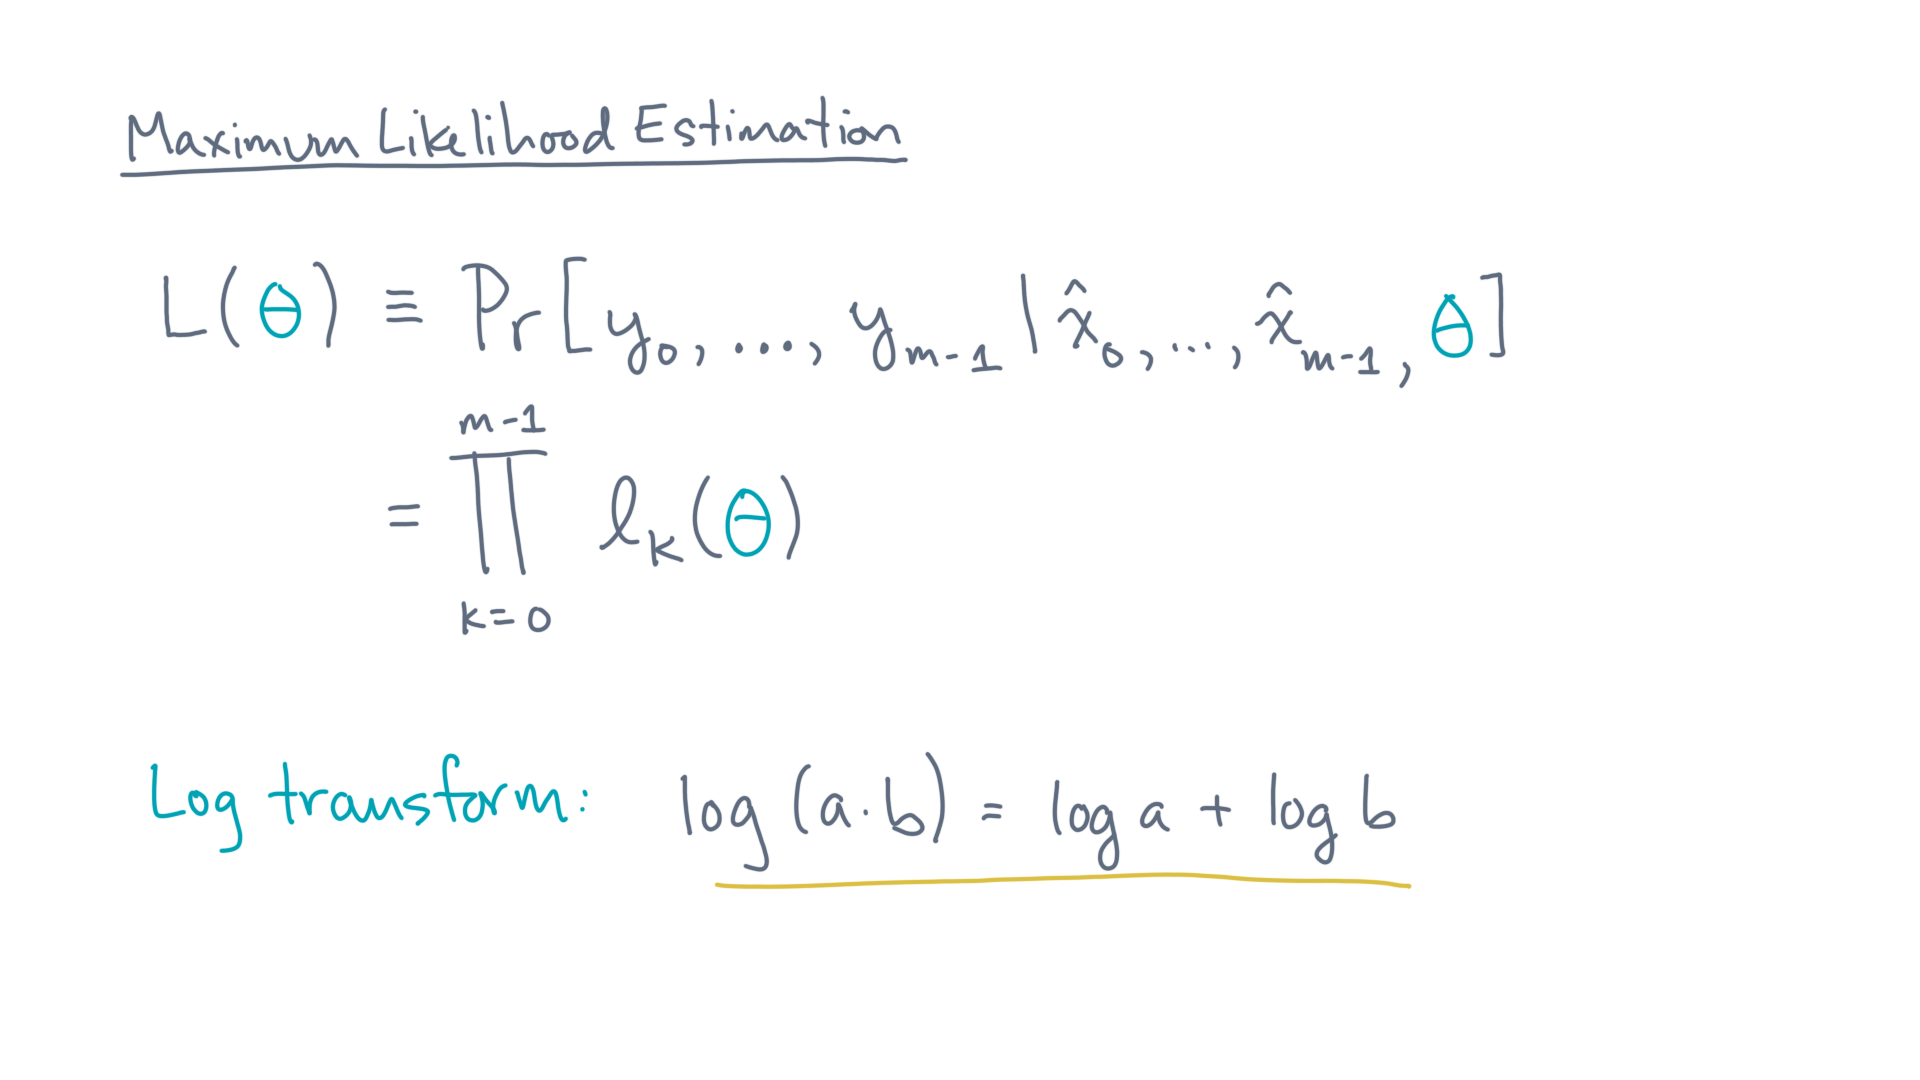 Maximum Likelihood Estimation
L(θ) ≡ Pr[y₀, ..., yₘ₋₁ | x̂₀, ..., x̂ₘ₋₁, θ]
m-1
= ∏ lₖ(θ)
k=0
Log transform: log (a·b) = log a + log b